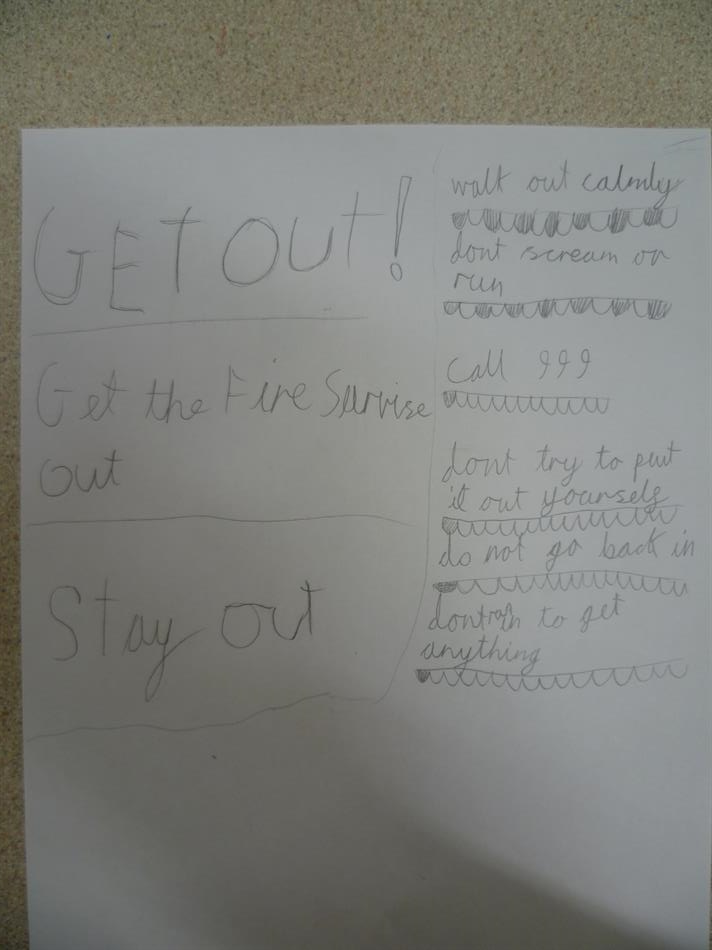 GET OUT!
Get the Fire Survise
out
Stay out
walk out calmly
dont scream or
run
call 999
dont try to put
it out yourself
do not go back in
to get
anything